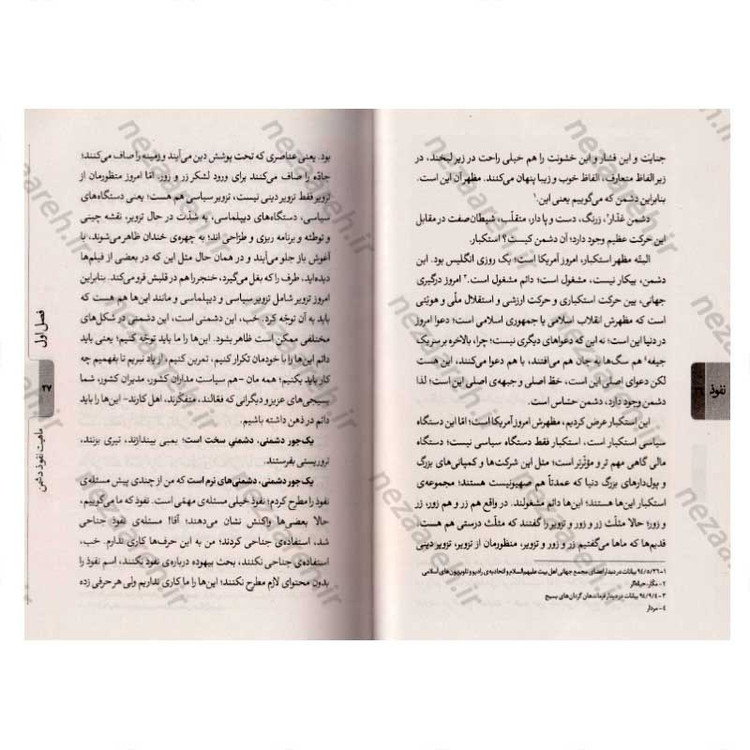 جنایت و این فشار و این خشونت را هم خیلی راحت در زیر لبخند، در
زیر الفاظ متعارف، الفاظ خوب و زیبا پنهان می‌کنند. مظهر آن این است.
بنابراین دشمن که می‌گوییم یعنی این.۱
دشمن غدّار۲، زرنگ، دست و پا دار، متقلّب، شیطان‌صفت در مقابل
این حرکت عظیم وجود دارد؛ آن دشمن کیست؟ استکبار.
البتّه مظهر استکبار، امروز آمریکا است؛ یک روزی انگلیس بود. این
دشمن، بیکار نیست، مشغول است؛ دائم مشغول است.۳ امروز درگیری
جهانی، بین حرکت استکباری و حرکت ارزشی و استقلال ملّی و هویّتی
است که مظهرش انقلاب اسلامی یا جمهوری اسلامی است؛ دعوا امروز
در دنیا این است؛ نه این که دعواهای دیگری نیست؛ چرا، بالاخره بر سر یک
جیفه۴ هم سگ‌ها به جان هم می‌افتند، با هم دعوا می‌کنند، این هست
لکن دعوای اصلی این است، خطّ اصلی و جبهه‌ی اصلی این است؛ لذا
دشمن وجود دارد، دشمن حسّاس است.
این استکبار عرض کردیم، مظهرش امروز آمریکا است؛ امّا این دستگاه
سیاسی استکبار است، استکبار فقط دستگاه سیاسی نیست؛ دستگاه
مالی گاهی مهم تر و مؤثّرتر است؛ مثل این شرکت‌ها و کمپانی‌های بزرگ
و پول‌دارهای بزرگ دنیا که عمدتاً هم صهیونیست هستند؛ مجموعه‌ی
استکبار این‌ها هستند؛ این‌ها دائم مشغولند. در واقع هم زر و هم زور، زر
و زور؛ حالا مثلّث زر و زور و تزویر را گفتند که مثلّث درستی هم هست.
قدیم‌ها که ماها می‌گفتیم زر و زور و تزویر، منظورمان از تزویر، تزویر دینی
۱- ۹۴/۵/۲۶ بیانات در دیدار اعضای مجمع جهانی اهل بیت علیهم‌السلام و اتحادیه‌ی رادیو و تلویزیون‌های اسلامی
۲ - مکّار، حیله‌گر
۳ - ۹۴/۹/۴ بیانات در دیدار فرماندهان گردان‌های بسیج
۴- مردار
نفوذ
بود. یعنی عناصری که تحت پوشش دین می‌آیند و زمینه را صاف می‌کنند؛
جادّه را صاف می‌کنند برای ورود لشکر زر و زور. امّا امروز منظورمان از
تزویر فقط تزویر دینی نیست، تزویر سیاسی هم هست؛ یعنی دستگاه‌های
سیاسی، دستگاه‌های دیپلماسی، به شدّت در حال تزویر، نقشه چینی
و توطئه و برنامه ریزی و طرّاحی اند؛ به چهره‌ی خندان ظاهر می‌شوند، با
آغوش باز جلو می‌آیند و در همان حال مثل این که در بعضی از فیلم‌ها
دیده‌اید، طرف را که بغل می‌گیرد، خنجر را هم در قلبش فرو می‌کند. بنابراین
امروز تزویر شامل تزویر سیاسی و دیپلماسی و مانند این‌ها هم هست که
باید به آن توجّه کرد. خب، این دشمنی است، این دشمنی در شکل‌های
مختلفی ممکن است ظاهر بشود. این‌ها را ما باید توجّه کنیم؛ یعنی باید
دائم این‌ها را با خودمان تکرار کنیم، تمرین کنیم، از یاد نبریم تا بفهمیم چه
کار باید بکنیم؛ همه مان -هم سیاست مداران کشور، مدیران کشور، شما
بسیجی‌های عزیز و دیگرانی که فعّالند، متفکّرند، اهل کارند- این‌ها را باید
دائم در ذهن داشته باشیم.
یک جور دشمنی، دشمنی سخت است؛ بمبی بیندازند، تیری بزنند،
تروریستی بفرستند.
یک جور دشمنی، دشمنی‌های نرم است که من از چندی پیش مسئله‌ی
نفوذ را مطرح کردم؛ نفوذ خیلی مسئله‌ی مهمّی است. نفوذ که ما می‌گوییم،
حالا بعضی‌ها واکنش نشان می‌دهند؛ آقا! مسئله‌ی نفوذ جناحی
شد، استفاده‌ی جناحی کردند؛ من به این حرف‌ها کاری ندارم. خب،
استفاده‌ی جناحی نکنند، بحث بیهوده درباره‌ی نفوذ بکنند، اسم نفوذ را
بدون محتوای لازم مطرح نکنند؛ این‌ها را ما کاری نداریم ولی هر حرفی زده
فصل اول
۲۷
ماهیت نفوذ دشمن
nezaareh.ir